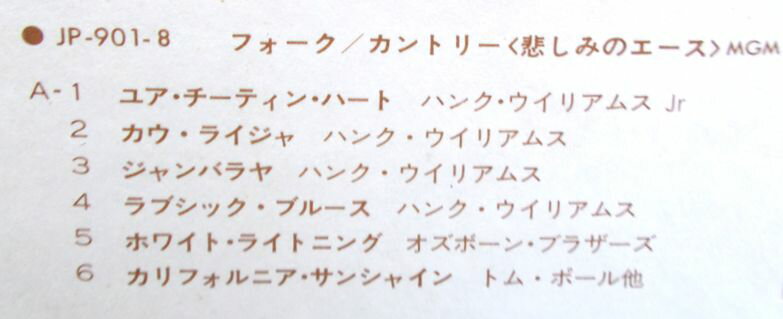 ● JP-901-8 フォーク／カントリー＜悲しみのエース＞ MGM
A-1 ユア・チーティン・ハート ハンク・ウイリアムス Jr
2 カウ・ライジャ ハンク・ウイリアムス
3 ジャンバラヤ ハンク・ウイリアムス
4 ラブシック・ブルース ハンク・ウイリアムス
5 ホワイト・ライトニング オズボーン・ブラザーズ
6 カリフォルニア・サンシャイン トム・ポール他